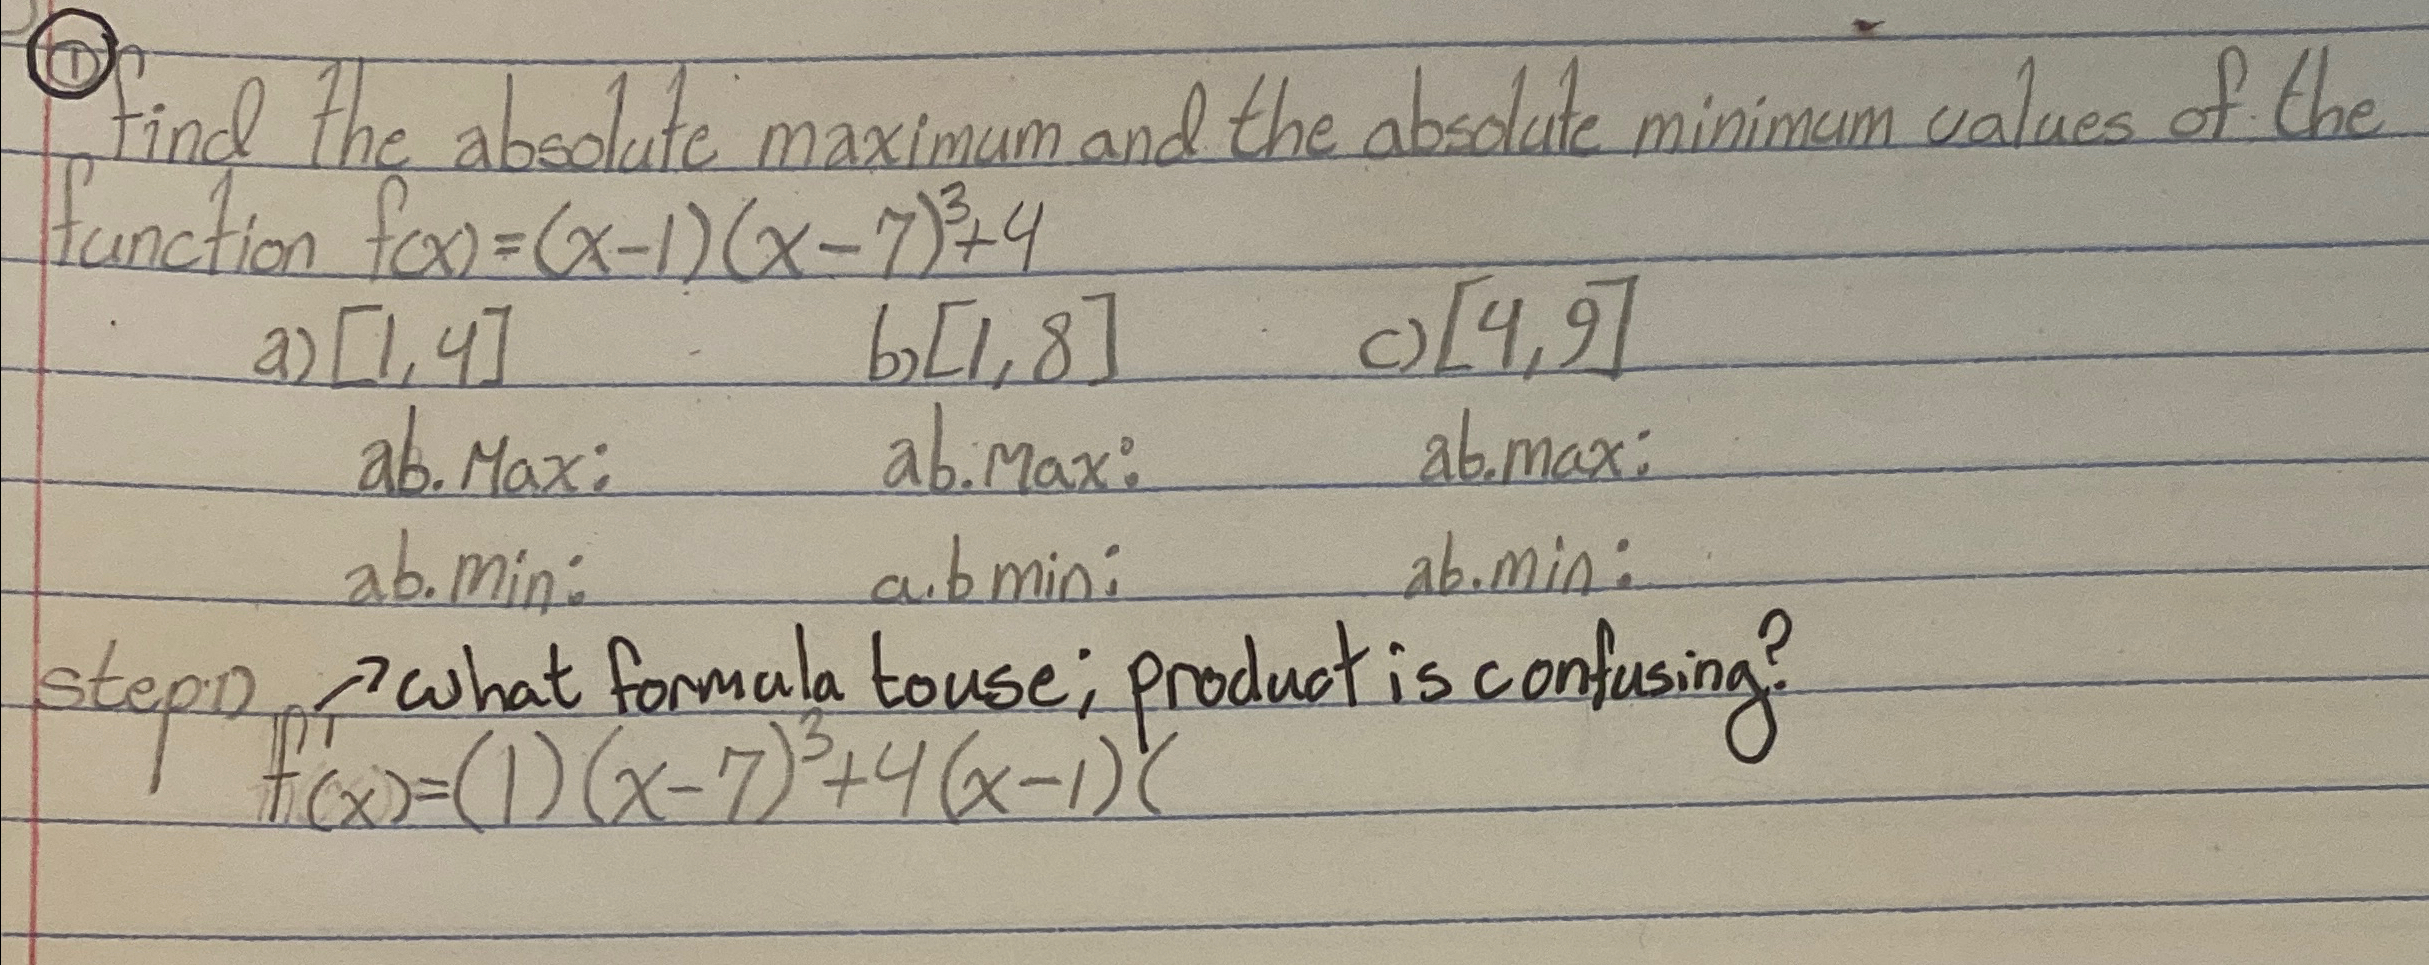 ① find the absolute maximum and the absolute minimum values of the
function f(x)=(x-1)(x-7)³+4
a) [1,4] b) [1,8] c) [4,9]
ab. Max: ab. Max: ab. max:
ab. min: a.b min: ab. min:
step 1) → what formula to use; product is confusing?
f'(x)=(1)(x-7)³+4(x-1)(